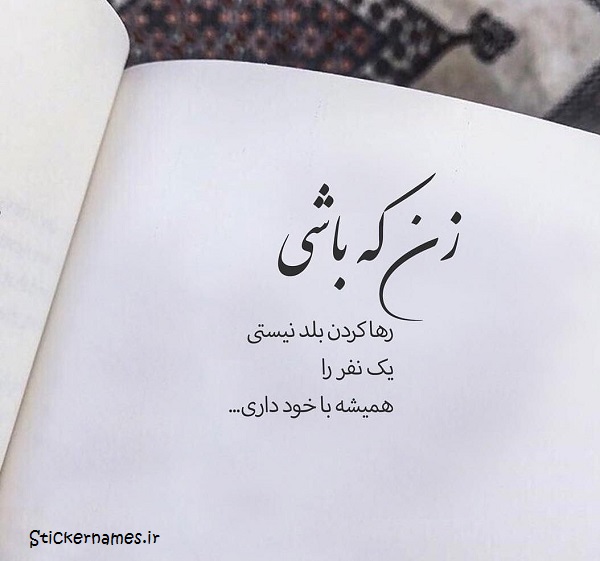 زن که باشی
رها کردن بلد نیستی
یک نفر را
همیشه با خود داری...
Stickernames.ir